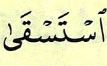 ٱسۡتَسۡقَىٰ